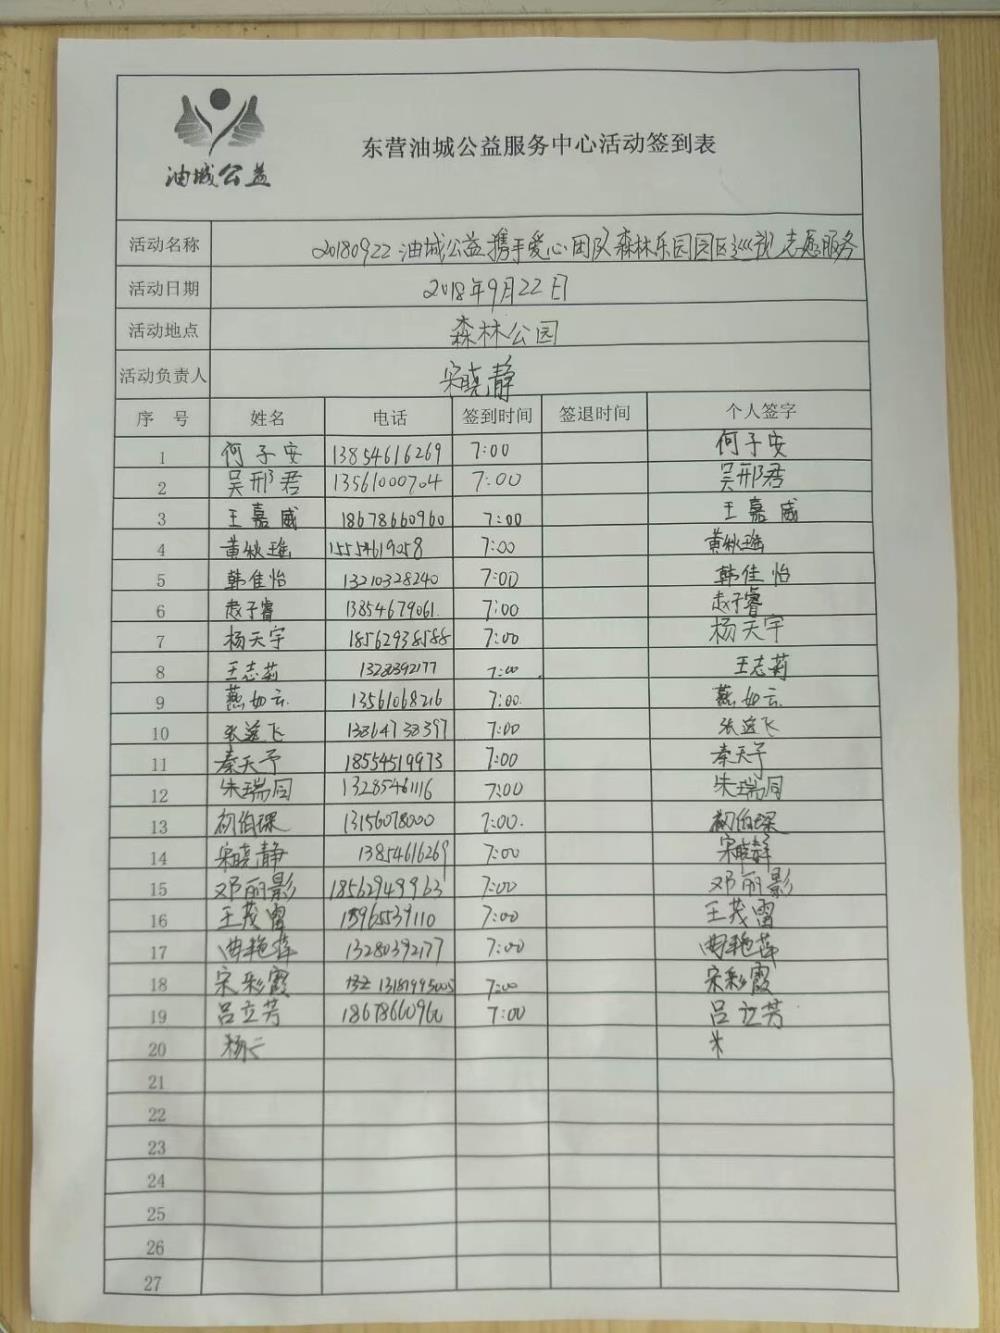 油城公益
东营油城公益服务中心活动签到表
活动名称 20180922油城公益携手爱心团队森林乐园园区巡视志愿服务
活动日期 2018年9月22日
活动地点 森林公园
活动负责人 宋晓静
序 号 姓名 电话 签到时间 签退时间 个人签字
1 何子安 13854616269 7:00 何子安
2 吴邢君 13561000704 7:00 吴邢君
3 王嘉威 18678660960 7:00 王嘉威
4 黄秋瑶 15554619258 7:00 黄秋瑶
5 韩佳怡 13210328240 7:00 韩佳怡
6 赵子睿 13854679061 7:00 赵子睿
7 杨天宇 18562938588 7:00 杨天宇
8 王志莉 13280392177 7:00 王志莉
9 燕如云 13561068216 7:00 燕如云
10 张 飞 13864738397 7:00 张 飞
11 秦天予 18554519973 7:00 秦天予
12 朱瑞同 13285461116 7:00 朱瑞同
13 初伯琛 13156078000 7:00 初伯琛
14 宋晓静 13854616269 7:00 宋晓静
15 邓丽影 18562949963 7:00 邓丽影
16 王茂雷 15965539110 7:00 王茂雷
17 曲艳萍 13280392177 7:00 曲艳萍
18 宋彩霞 13181995005 7:00 宋彩霞
19 吕立芳 18678660960 7:00 吕立芳
20 杨
21
22
23
24
25
26
27